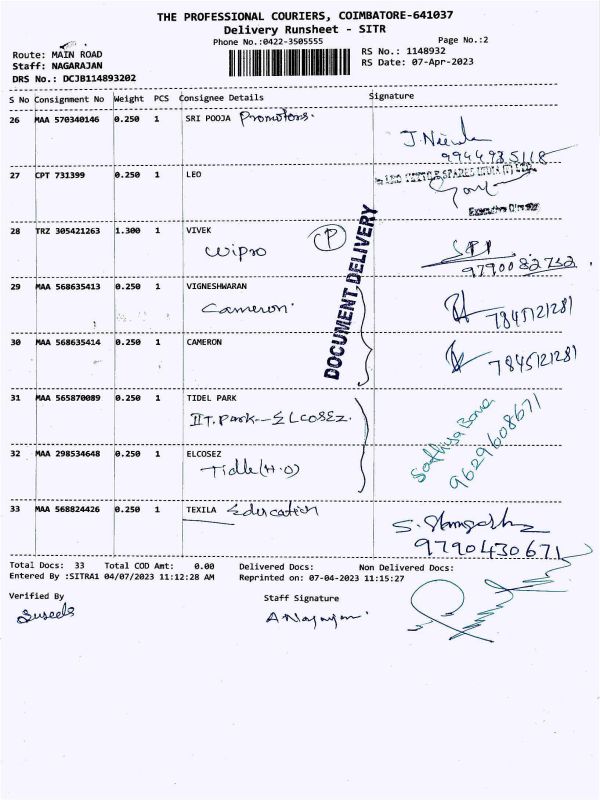 THE PROFESSIONAL COURIERS, COIMBATORE-641037
Delivery Runsheet - SITR
Phone No.:0422-3505555 Page No.:2
Route: MAIN ROAD RS No.: 1148932
Staff: NAGARAJAN RS Date: 07-Apr-2023
DRS No.: DCJB114893202
S No Consignment No Weight PCS Consignee Details Signature
26 MAA 570340146 0.250 1 SRI POOJA Promotons.
9944985118
27 CPT 731399 0.250 1 LEO
Executive Director
28 TRZ 305421263 1.300 1 VIVEK
Wipro P
9790082752
DOCUMENT DELIVERY
29 MAA 568635413 0.250 1 VIGNESHWARAN
Cameron.
7845121281
30 MAA 568635414 0.250 1 CAMERON
7845121281
31 MAA 565870089 0.250 1 TIDEL PARK
IIT.Park--ELCOSEZ.
Sathiya Bama
9629608671
32 MAA 298534648 0.250 1 ELCOSEZ
Tidle(H.O)
33 MAA 568824426 0.250 1 TEXILA Edercation
9790430671
Total Docs: 33 Total COD Amt: 0.00 Delivered Docs: Non Delivered Docs:
Entered By :SITRA1 04/07/2023 11:12:28 AM Reprinted on: 07-04-2023 11:15:27
Verified By Staff Signature
Suseela